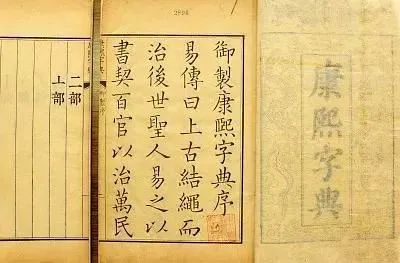 康熙字典
御製康熙字典序
易傳曰上古結繩而
治後世聖人易之以
書契百官以治萬民
二部
丄部